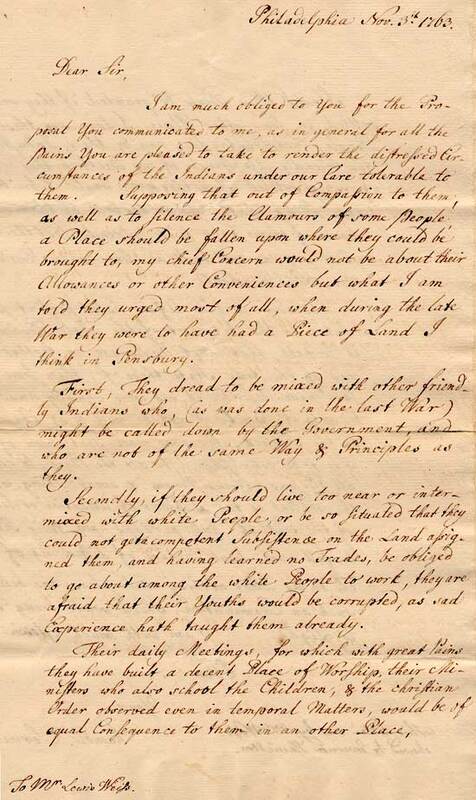 Philadelphia Nov. 3th 1763.
Dear Sir,
I am much obliged to You for the Pro-
posal You communicated to me, as in general for all the
Pains You are pleased to take to render the distressed Cir-
cumstances of the Indians under our Care tolerable to
them. Supposing that out of Compassion to them,
as well as to silence the Clamours of some People
a Place should be fallen upon where they could be
brought to, my chief Concern would not be about their
Allowances or other Conveniences but what I am
told they urged most of all, when during the late
War they were to have had a Piece of Land I
think in Pensbury.
First, They dread to be mixed with other friend-
ly Indians who, (as was done in the last War)
might be called down by the Government, and
who are not of the same Way & Principles as
they.
Secondly, if they should live too near or inter-
mixed with white People, or be so situated that they
could not get a competent Subsistence on the Land assig-
ned them, and having learned no Trades, be obliged
to go about among the white People to work, they are
afraid that their Youths would be corrupted, as sad
Experience hath taught them already.
Their daily Meetings, for which with great Pains
they have built a decent Place of Worship, their Mi-
nisters who also school the Children, & the christian
Order observed even in temporal Matters, would be of
equal Consequence to them in an other Place,
To Mr. Lewis Weiss.